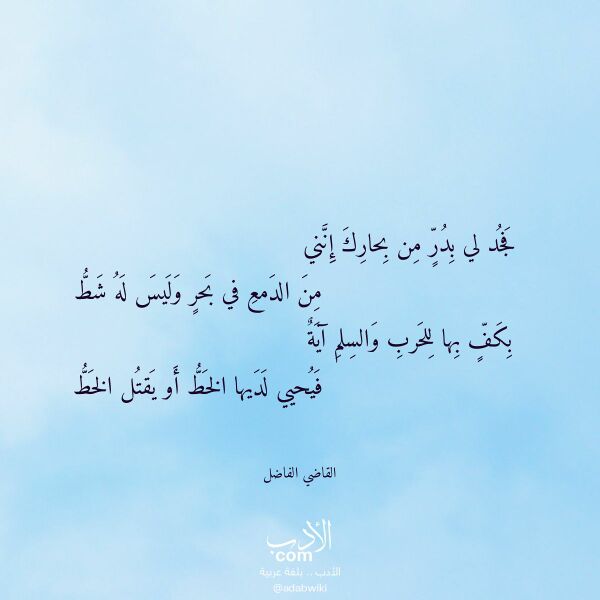 فَجُد لي بِدُرٍّ مِن بِحارِكَ إِنَّني
مِنَ الدَمعِ في بَحرٍ وَلَيسَ لَهُ شَطُّ
بِكَفٍّ بِها لِلحَربِ وَالسِلمِ آيَةٌ
فَيُحيي لَدَيها الخَطُّ أَو يَقتُل الخَطُّ
القاضي الفاضل
الأدب
com
الأدب .. بلغة عربية
@adabwiki